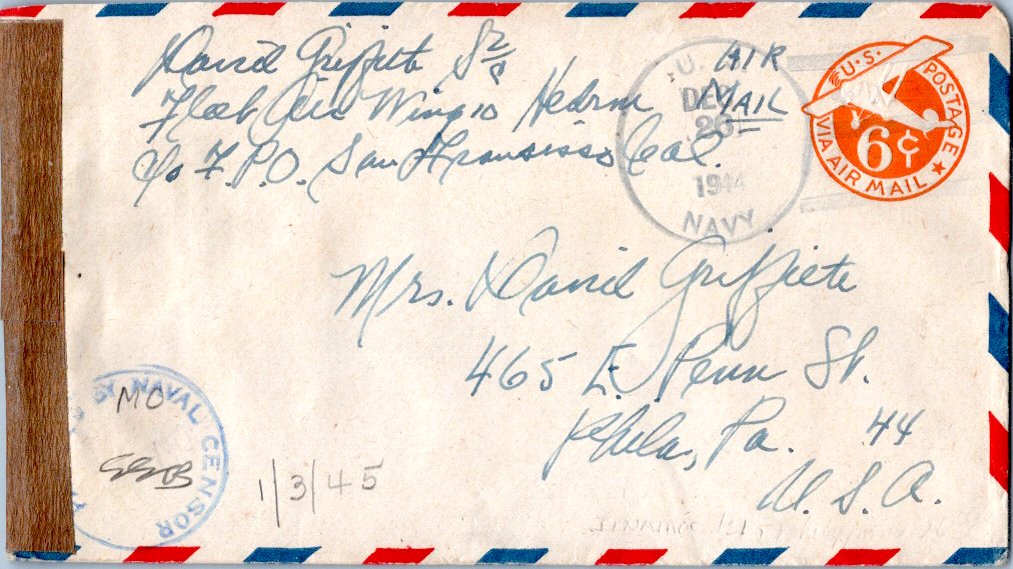 David Griffith S 2/c
Fleet Air Wing 10 Hedrn
c/o F.P.O. San Fransisso Cal.
AIR
MAIL
U.
DEC
26
1944
NAVY
U.S. POSTAGE
6¢
VIA AIR MAIL
Mrs. David Griffith
465 E. Penn St.
Phila, Pa. 44
U. S. A.
BY NAVAL CENSOR
MO
1/3/45